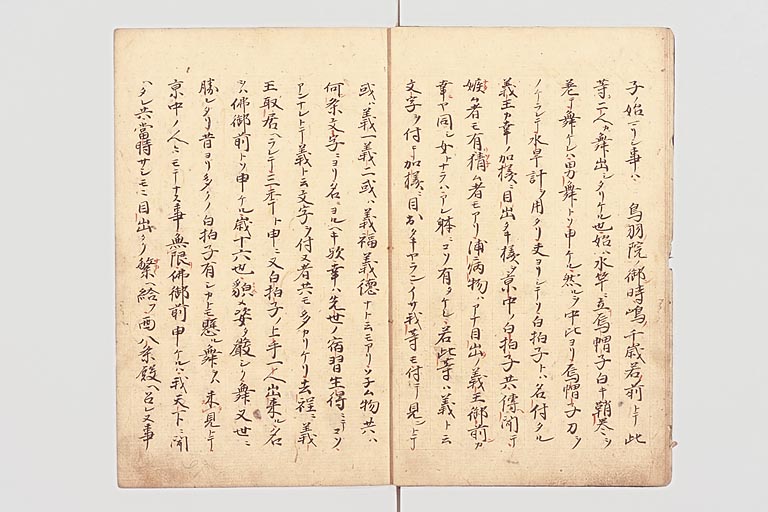 子ノ始マリシ事ハ 鳥羽院ノ御時嶋ノ千歳若ノ前トテ此
等二人カ舞出シタリケル也始ハ水竿ニ立烏帽子白キ鞘巻ヲ
巻テ舞ケレハ男舞トソ申ケル然ルヲ中比ヨリ烏帽子刀ヲ
ノケラレテ水旱計ヲ用タリ丈ヨリシテソ白拍子トハ名付タル
義王カ幸ノ加様ニ目出タキ様ヲ京中ノ白拍子共傳聞テ
嫉ム者モ有猜ム者モアリ浦病物ハアナ目出ノ義王御前カ
幸ヤ同シ女トナラハアレ躰ニコソ有タケレ若此等ハ義ト云
文字ヲ付テ加様ニ目出タキヤランイサ我等モ付テ見ントテ
或ハ義一義二或ハ義福義徳ナト云モアリソチム物共ハ
何条文字ニヨリ名ニヨルヘキ欤幸ハ先世ノ宿習生得ニテコソ
アンナレトテ義ト云文字ヲ付又者共モ多カリケリ去程ニ義
王取居ヘラレテ三年ト申ニ又白拍子ノ上手一人出来ル名
ヲハ佛御前トソ申ケル歳十六也貌姿ノ厳シク舞又世ニ
勝レタリ昔ヨリ多クノ白拍子有シカトモ懸ル舞ヲハ未見トテ
京中ノ人々ニモテナス事無限佛御前申ケルハ我天下ニ聞
ヘタレ共當時サシモニ目出タク繁ヘ給フ西八条殿ヘ召レヌ事